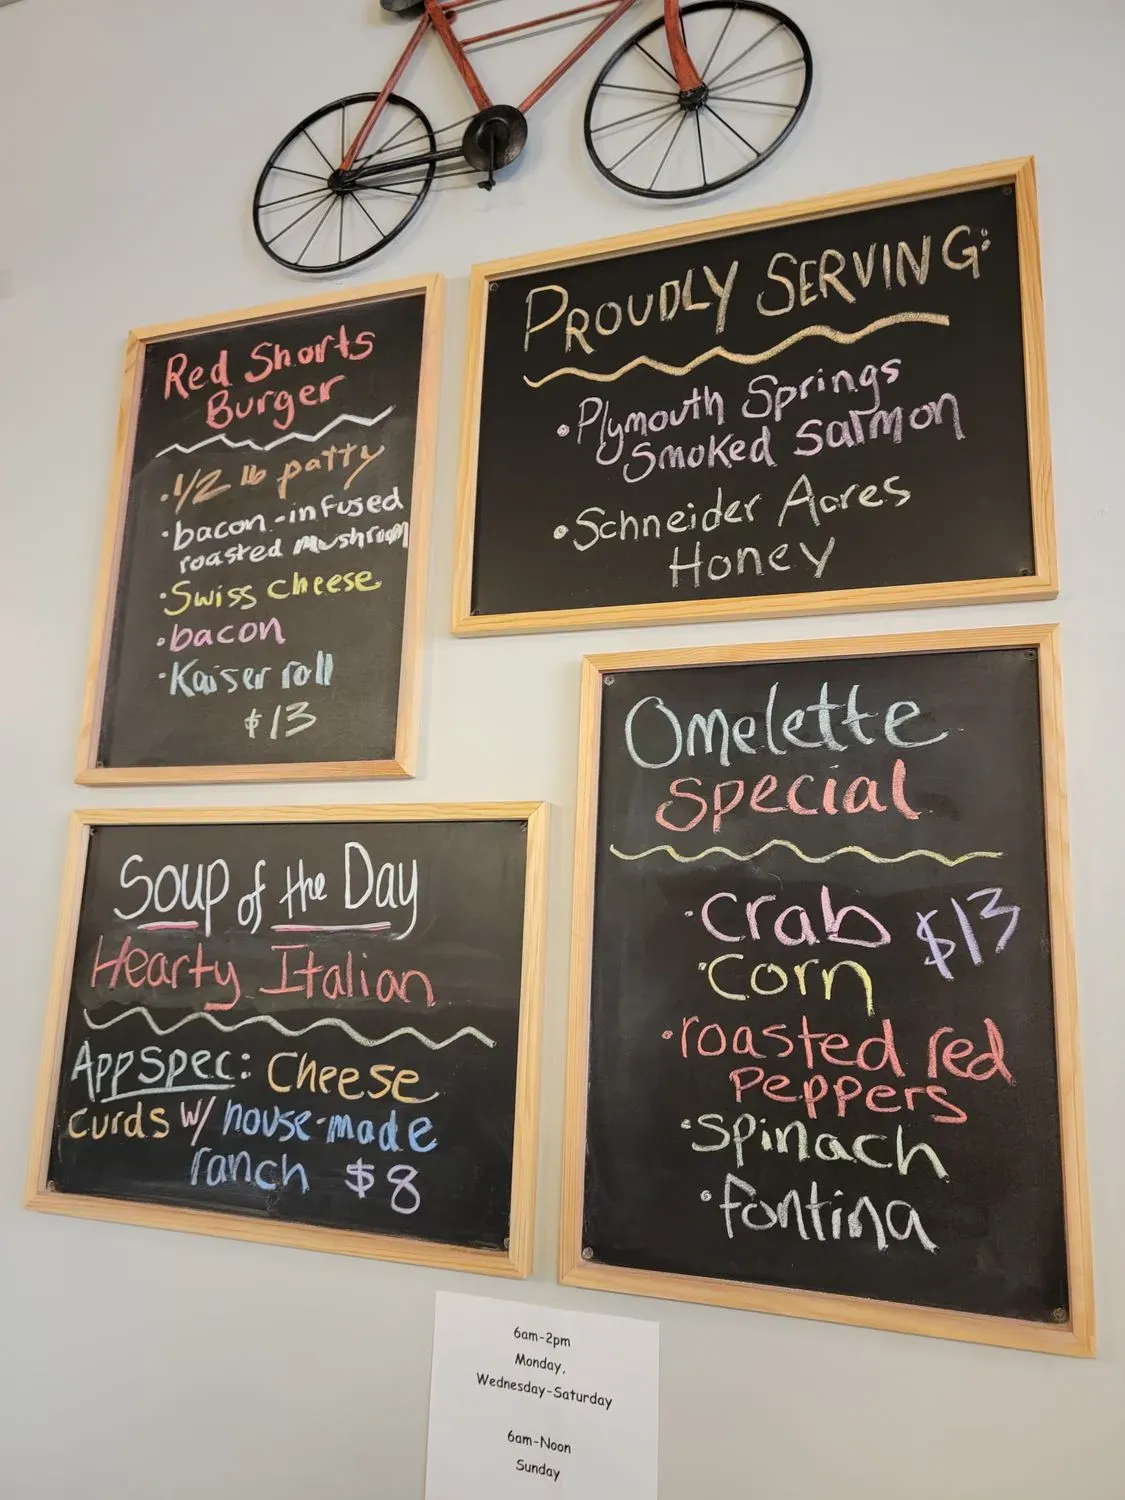 Red Shorts
Burger
• 1/2 lb patty
• bacon-infused
roasted mushroom
• Swiss cheese
• bacon
• Kaiser roll
$13
PROUDLY SERVING:
• Plymouth Springs
Smoked Salmon
• Schneider Acres
Honey
Soup of the Day
Hearty Italian
App Spec: Cheese
Curds w/ house-made
ranch $8
Omelette
Special
• Crab $13
• Corn
• roasted red
Peppers
• Spinach
• fontina
6am-2pm
Monday,
Wednesday-Saturday
6am-Noon
Sunday